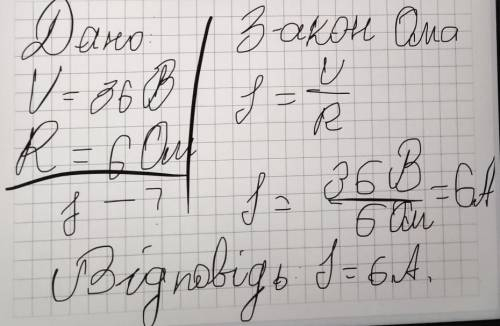 Дано:
U = 36 В
R = 6 Ом
I – ?
З-акон Ома
I = U/R
I = 36 В/6 Ом = 6 А
Відповідь: I = 6 А.